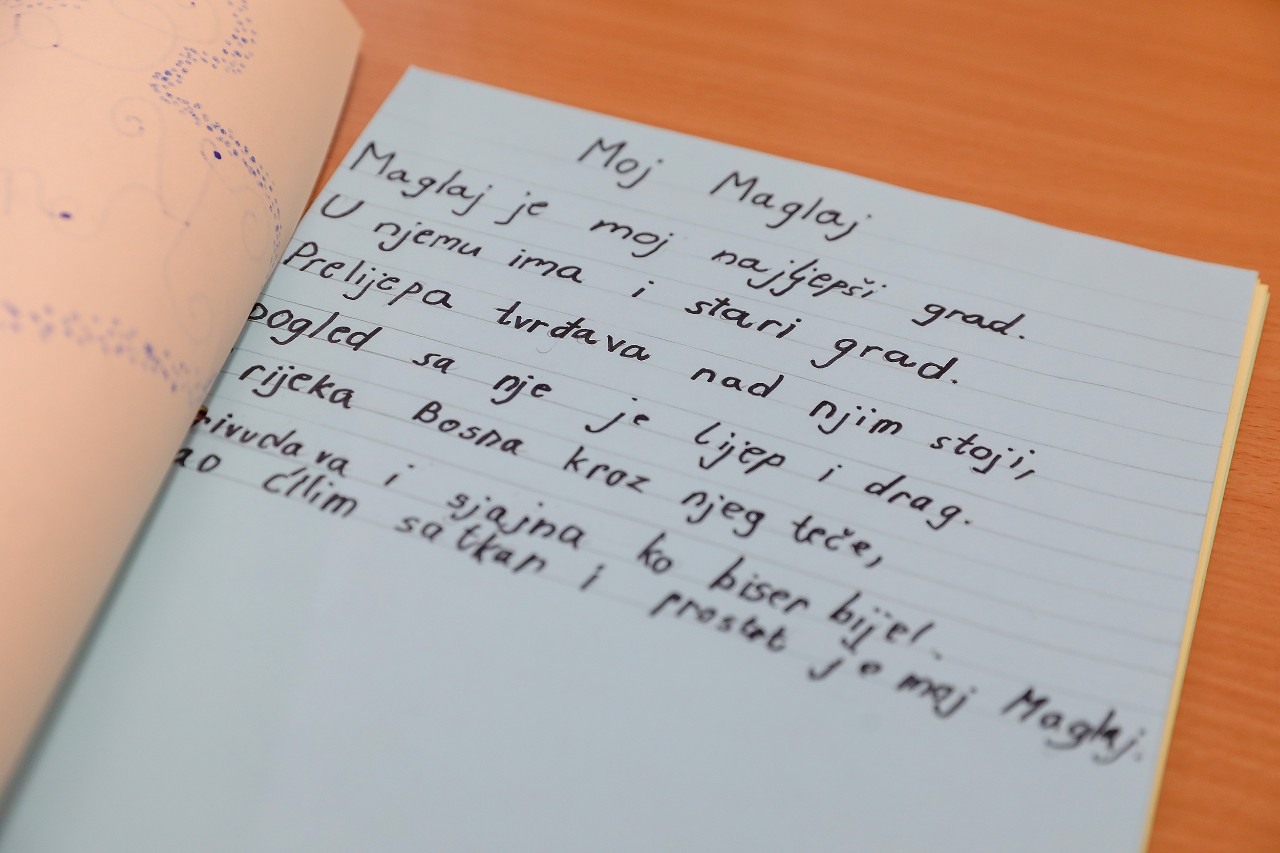 Moj Maglaj
Maglaj je moj najljepši grad.
U njemu ima i stari grad.
Prelijepa tvrđava nad njim stoji,
pogled sa nje je lijep i drag.
rijeka Bosna kroz njeg teče,
rivudava i sjajna ko biser bijel.
ao ćilim satkan i prostrt je moj Maglaj.